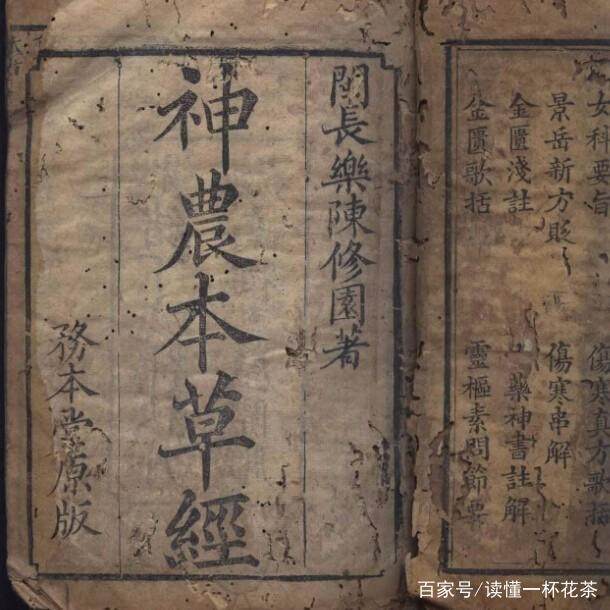 女科要旨
傷寒真方歌括
景岳新方貶
傷寒串解
金匱淺註
神書註解
金匱歌括
靈樞素問節要
閩長樂陳修園著
神農本草經
務本堂原版
百家号/读懂一杯花茶